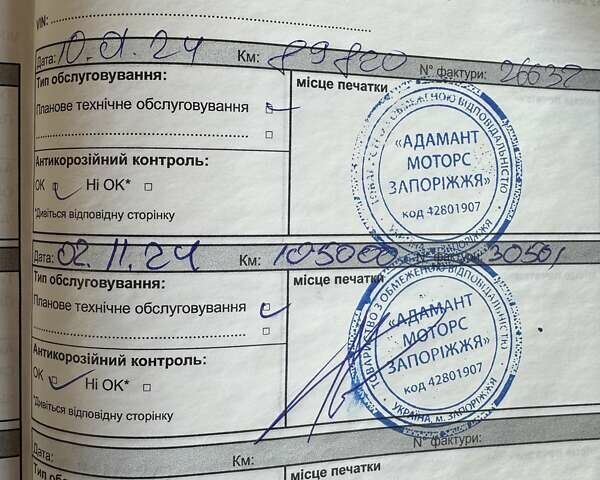 VIN:
Дата: 10.01.24 Км: 89820 N° фактури: 26632
Тип обслуговування:
місце печатки
Планове технічне обслуговування
ТОВАРИСТВО З ОБМЕЖЕНОЮ ВІДПОВІДАЛЬНІСТЮ
«АДАМАНТ
МОТОРС
ЗАПОРІЖЖЯ»
код 42801907
УКРАЇНА, м. ЗАПОРІЖЖЯ
Антикорозійний контроль:
ОК Ні ОК*
*Дивіться відповідну сторінку
Дата: 02.11.24 Км: 105000 N° фактури:
Тип обслуговування:
місце печатки
Планове технічне обслуговування
ТОВАРИСТВО З ОБМЕЖЕНОЮ ВІДПОВІДАЛЬНІСТЮ
«АДАМАНТ
МОТОРС
ЗАПОРІЖЖЯ»
код 42801907
УКРАЇНА, м. ЗАПОРІЖЖЯ
Антикорозійний контроль:
ОК Ні ОК*
*Дивіться відповідну сторінку
Дата: Км: N° фактури:
місце печатки